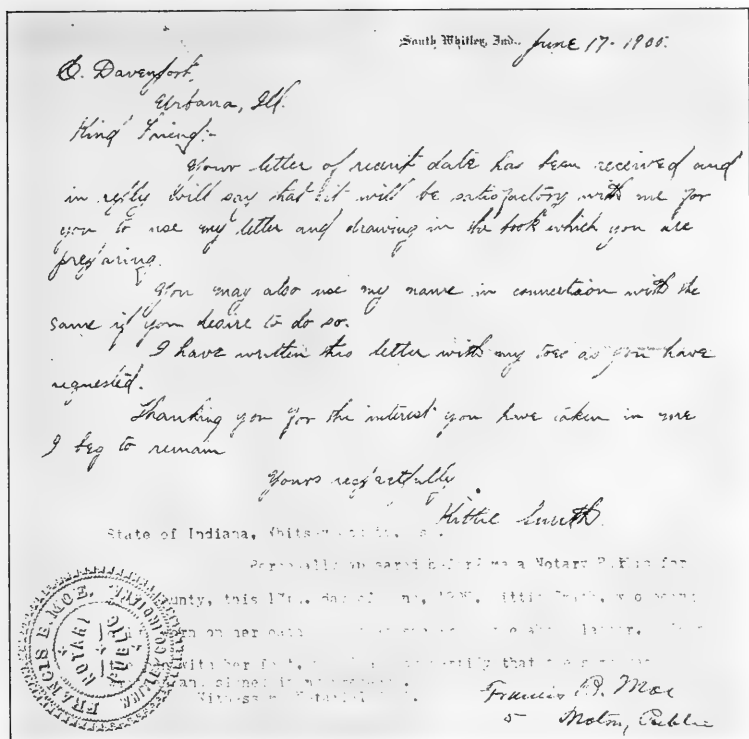 South Whitley, Ind., June 17-1905.
C. Davenport,
Urbana, Ill.
Kind Friend:-
Your letter of recent date has been received and
in reply will say that it will be satisfactory with me for
you to use my letter and drawing in the book which you are
preparing.
You may also use my name in connection with the
same if you desire to do so.
I have written this letter with my toes as you have
requested.
Thanking you for the interest you have taken in me
I beg to remain
Yours respectfully,
Kittie Smith.
State of Indiana,
Personally a Notary for
County, this
on her letter.
with her certify that
signed
Witness
Francis E. Moe
Notary Public
FRANCIS E. MOE.
NOTARY PUBLIC